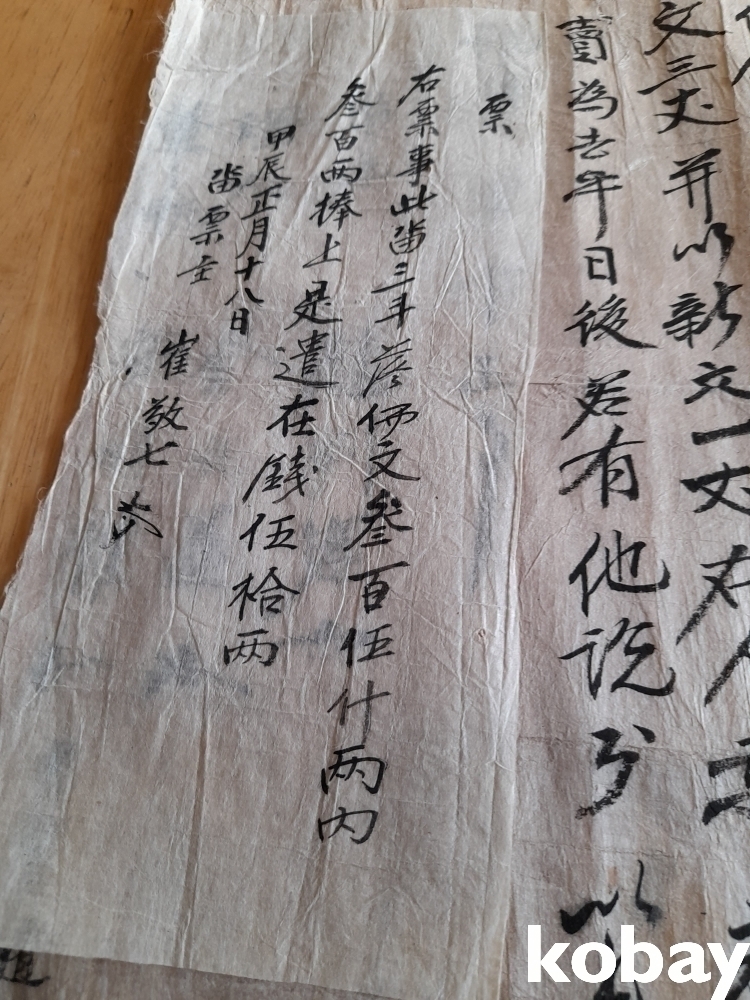 文三丈并以新文一丈右人
賣為去乎日後若有他說 以
票
右票事此畓三斗落価文叄百伍什両內
叄百両捧上是遣在錢伍拾両
甲辰正月十八日
畓票主 崔敬七
kobay